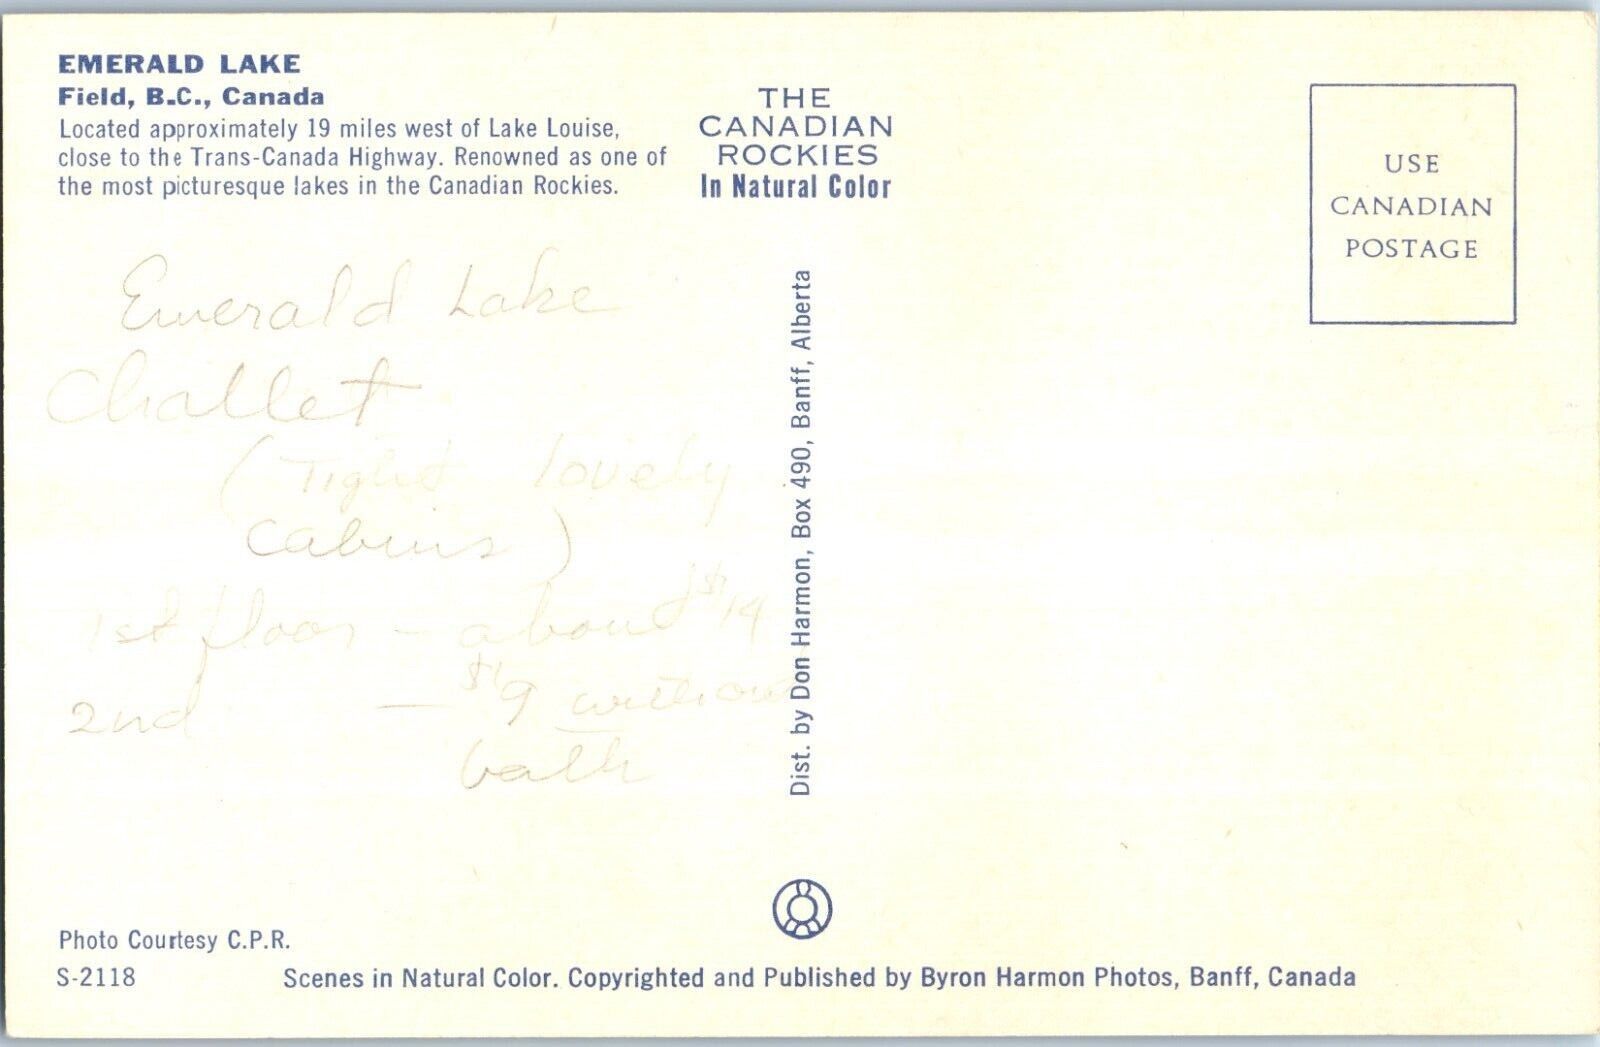 EMERALD LAKE
Field, B.C., Canada
Located approximately 19 miles west of Lake Louise,
close to the Trans-Canada Highway. Renowned as one of
the most picturesque lakes in the Canadian Rockies.
THE
CANADIAN
ROCKIES
In Natural Color
USE
CANADIAN
POSTAGE
Emerald Lake
Challet
(Tight lovely
cabins)
1st floor - about $14
2nd — $9 without
bath
Dist. by Don Harmon, Box 490, Banff, Alberta
Photo Courtesy C.P.R.
S-2118
Scenes in Natural Color. Copyrighted and Published by Byron Harmon Photos, Banff, Canada